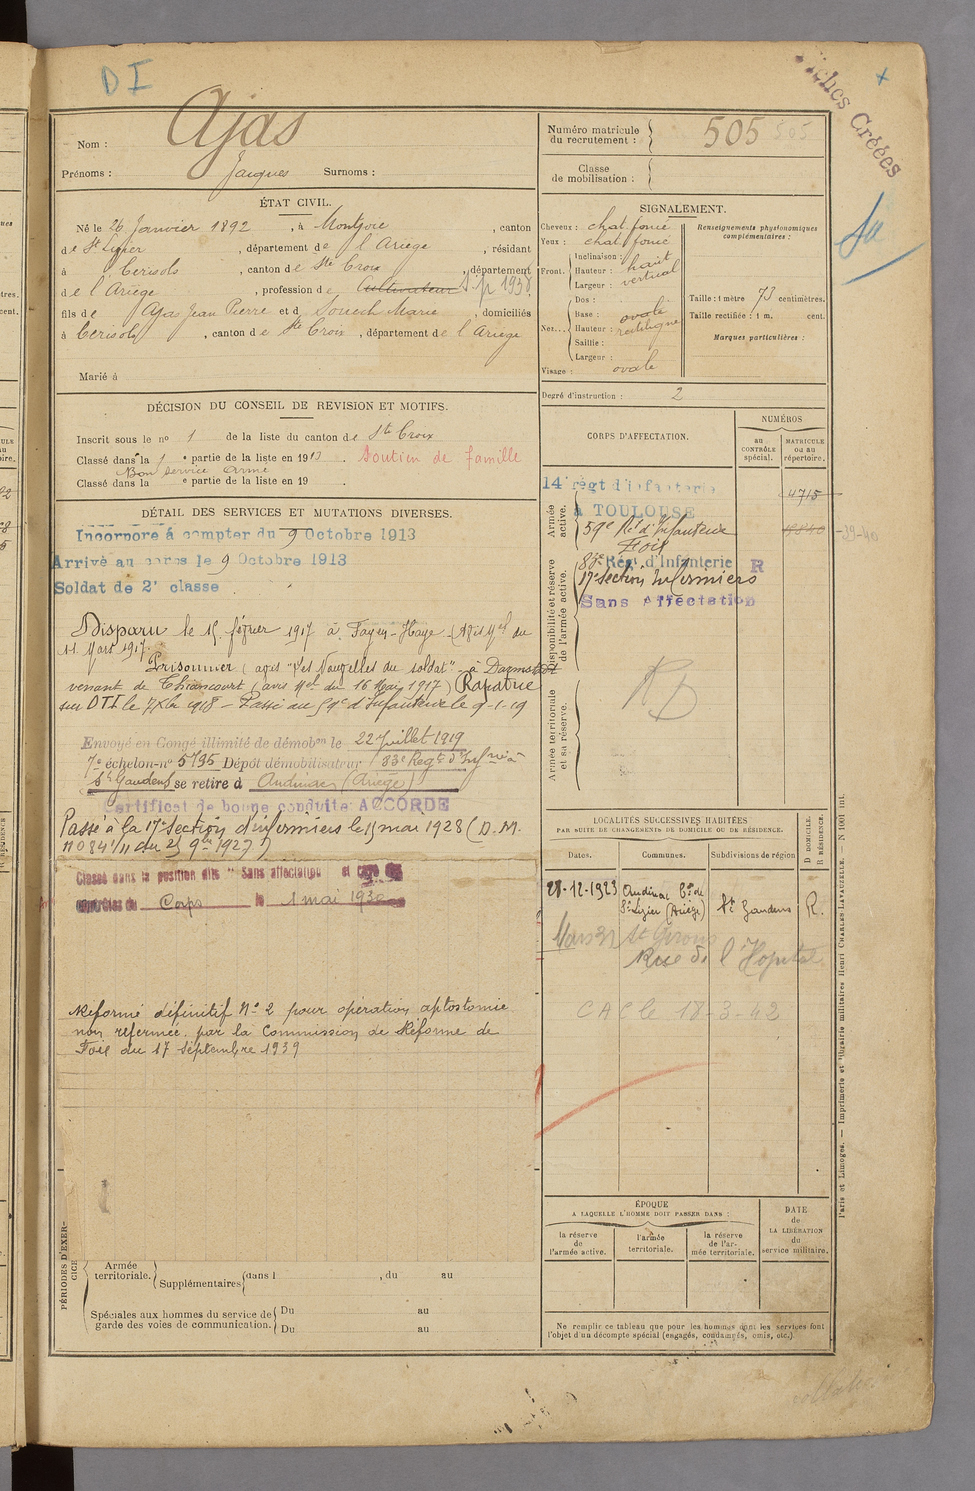 D I
Fiches Créées
Nom : Ajas
Prénoms : Jacques Surnoms :
Numéro matricule du recrutement : 505 505
Classe de mobilisation :
ÉTAT CIVIL.
Né le 26 Janvier 1892, à Montjoie, canton
de St Lizier, département de l'Ariège, résidant
à Cerisols, canton de Ste Croix, département
de l'Ariège, profession de Cultivateur
fils de Ajas Jean Pierre et de Souech Marie, domiciliés
à Cerisols, canton de Ste Croix, département de l'Ariège
Marié à
SIGNALEMENT.
Cheveux : chat. foncé
Yeux : chat. foncé
Front. Inclinaison :
Hauteur : haut
Largeur : vertical
Nez... Dos :
Base : ovale
Hauteur : rectiligne
Saillie :
Largeur :
Visage : ovale
Renseignements physionomiques complémentaires :
Taille : 1 mètre 73 centimètres.
Taille rectifiée : 1 m. cent.
Marques particulières :
Degré d'instruction : 2
DÉCISION DU CONSEIL DE REVISION ET MOTIFS.
Inscrit sous le no 1 de la liste du canton de Ste Croix
Classé dans la 1 e partie de la liste en 1913. Soutien de famille
Bon service armé
Classé dans la e partie de la liste en 19 .
DÉTAIL DES SERVICES ET MUTATIONS DIVERSES.
Incorporé à compter du 9 Octobre 1913
Arrivé au corps le 9 Octobre 1913
Soldat de 2e classe
Disparu le 15 février 1917 à Fayen-Haye (Avis Mel du
11 Mars 1917.
Prisonnier (avis "Les Nouvelles du soldat" à Darmstadt
venant de Thiaucourt (avis Mel du 16 Mai 1917) Rapatrié
sur DTI le 7 Xbre 1918 - Passé au 59e d'Infanterie le 9-1-19
Envoyé en Congé illimité de démobon le 22 Juillet 1919
7e échelon-no 5795 Dépôt démobilisateur 83e Regt d'Infrie à
St Gaudens se retire à Audinac (Ariège)
Certificat de bonne conduite ACCORDÉ
Passé à la 17e Section d'infirmiers le 15 mai 1928 (D.M.
no 841/11 du 25 9bre 1927)
Classé dans la position dite "Sans affectation"
contrôles du Corps le 1 mai 1930
Réformé définitif No 2 pour opération
non refermée, par la Commission de Réforme de
Foix du 17 septembre 1939
CORPS D'AFFECTATION.
NUMÉROS
au CONTRÔLE spécial.
MATRICULE ou au répertoire.
Armée active.
14e régt d'infanterie 4715
à TOULOUSE
59e Rt d'Infanterie
Foix
Disponibilité et réserve de l'armée active.
83e Régt d'Infanterie R
17e Section Infirmiers
Sans Affectation
Armée territoriale et sa réserve.
LOCALITÉS SUCCESSIVES HABITÉES
PAR SUITE DE CHANGEMENTS DE DOMICILE OU DE RÉSIDENCE.
Dates. Communes. Subdivisions de région D DOMICILE. R RÉSIDENCE.
28-12-1923 Audinac Cne de St Lizier (Ariège) St Gaudens R.
Mars 31 St Girons
Rue de l'Hopital
CAC le 18-3-42
ÉPOQUE
A LAQUELLE L'HOMME DOIT PASSER DANS :
la réserve de l'armée active.
l'armée territoriale.
la réserve de l'armée territoriale.
DATE de LA LIBÉRATION du service militaire.
Ne remplir ce tableau que pour les hommes dont les services font
l'objet d'un décompte spécial (engagés, condamnés, omis, etc.)
PÉRIODES D'EXERCICE
Armée territoriale. Supplémentaires dans l , du au
Spéciales aux hommes du service de garde des voies de communication. Du au
Du au
Paris et Limoges. — Imprimerie et librairie militaires Henri CHARLES-LAVAUZELLE. — N 1001 int.